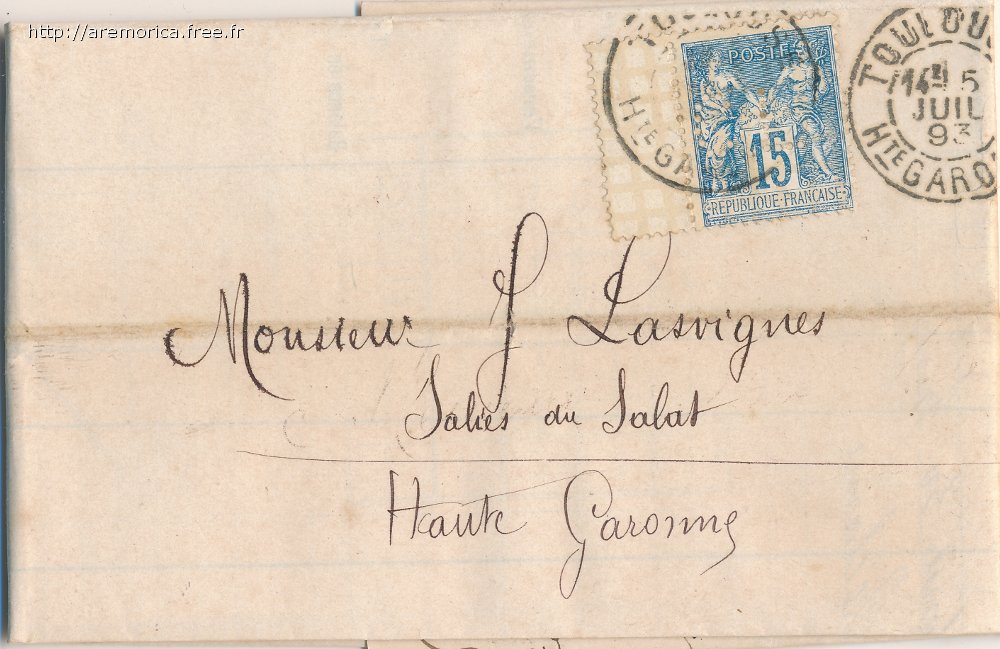 http://aremorica.free.fr
POSTES
15
REPUBLIQUE FRANÇAISE
HTE GA
TOULOU
14E 5
JUIL
93
HTE GARO
Monsieur J Lasvignes
Salies du Salat
Haute Garonne